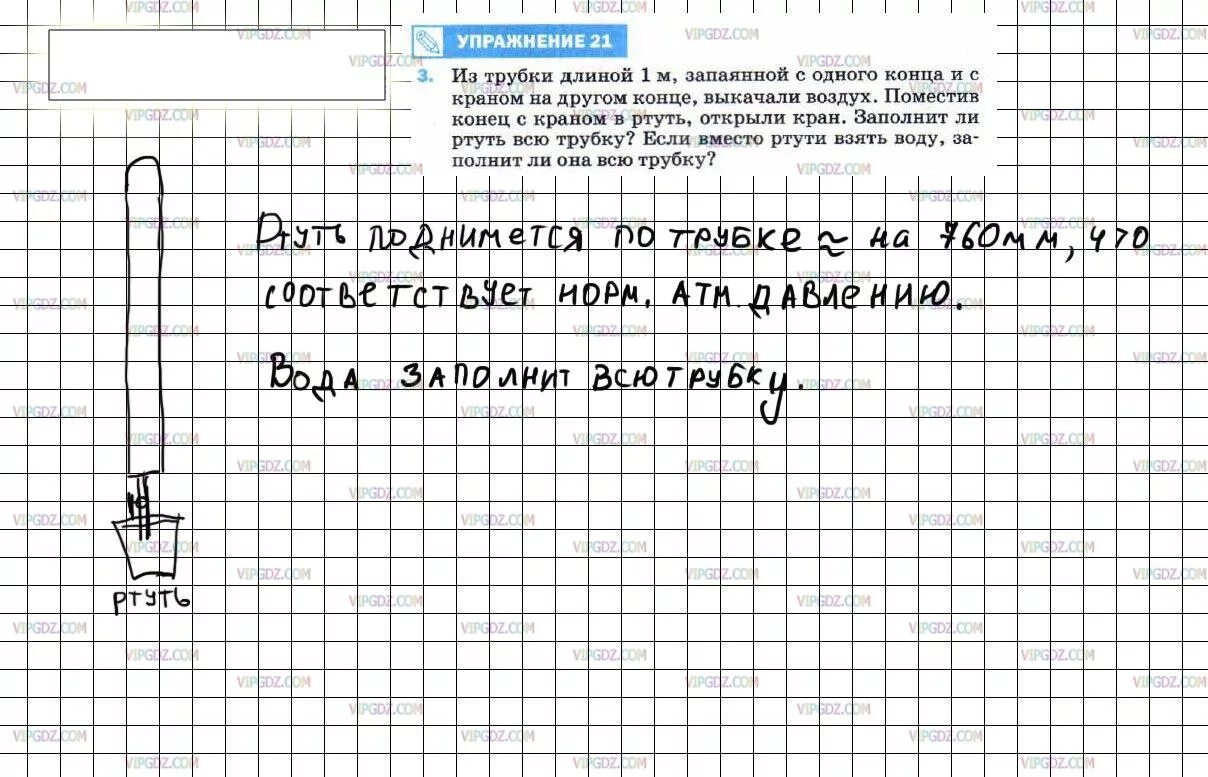 УПРАЖНЕНИЕ 21
3. Из трубки длиной 1 м, запаянной с одного конца и с
краном на другом конце, выкачали воздух. Поместив
конец с краном в ртуть, открыли кран. Заполнит ли
ртуть всю трубку? Если вместо ртути взять воду, за-
полнит ли она всю трубку?
Ртуть поднимется по трубке ≈ на 760мм, что
соответствует норм. атм. давлению.
Вода заполнит всю трубку.
ртуть
VIPGDZ.COM